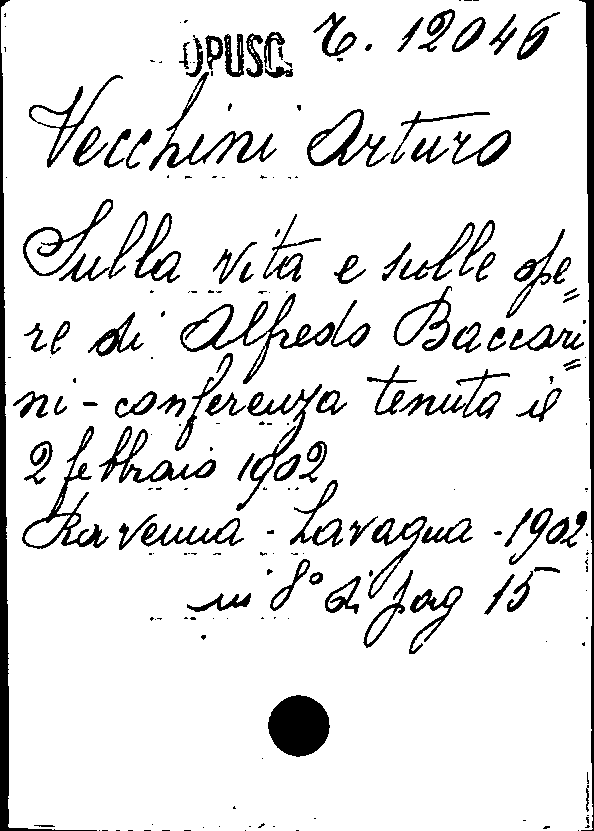 OPUSC. T. 12046
Vecchini Arturo
Sulla vita e sulle ope=
re di Alfredo Baccari=
ni - conferenza tenuta il
2 febbraio 1902
Ravenna - Lavagna - 1902
in 8° di pag 15